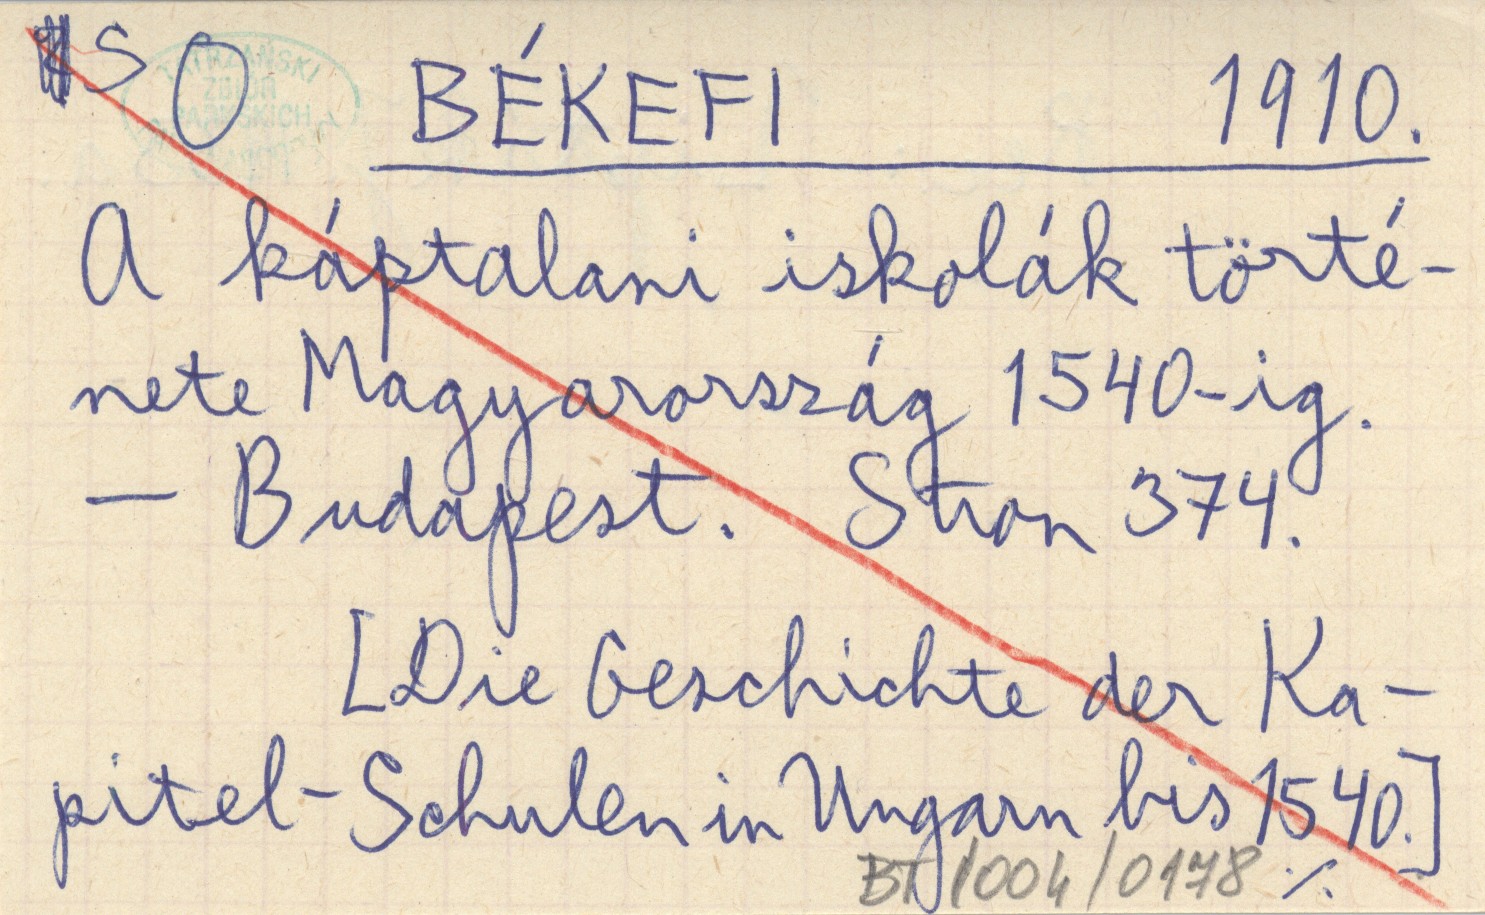 S O BÉKEFI 1910.
TATRZAŃSKI
ZBIÓR
PARYSKICH
A káptalani iskolák törté-
nete Magyarország 1540-ig.
— Budapest. Stron 374.
[Die Geschichte der Ka-
pitel-Schulen in Ungarn bis 1540.]
BT/004/0178 ./.